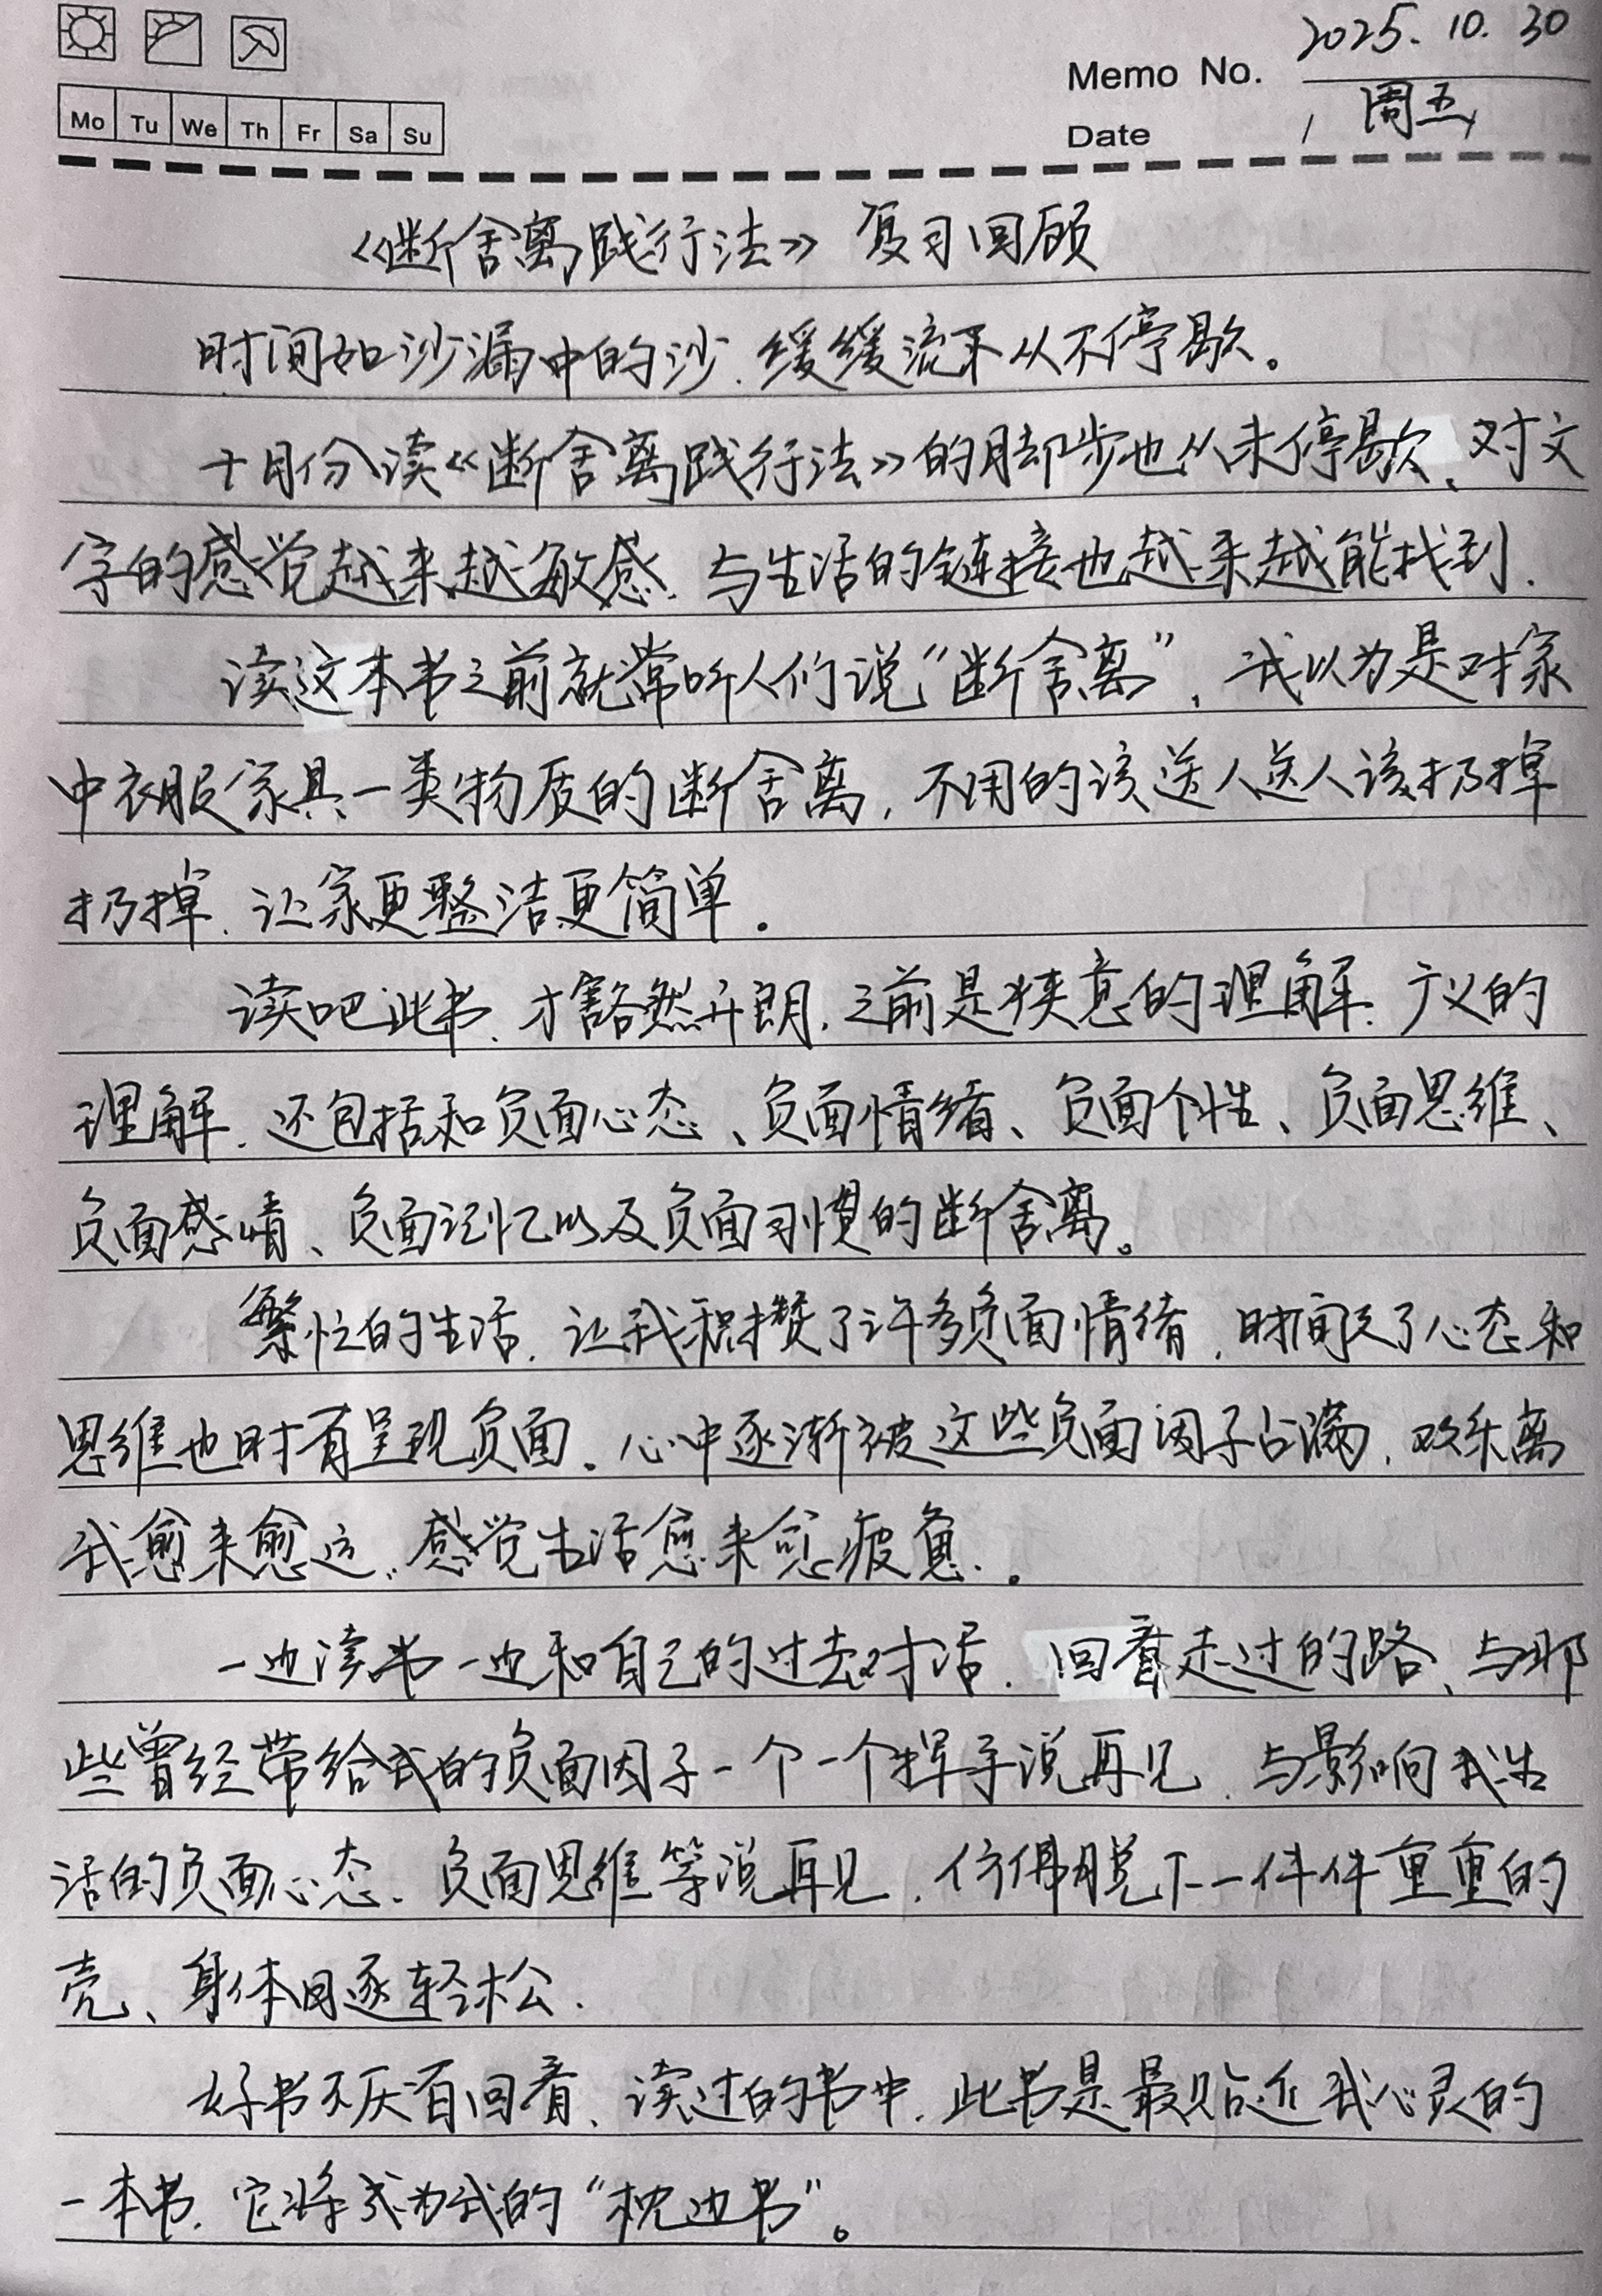 2025.10.30
Memo No.
Mo Tu We Th Fr Sa Su
Date 周五
《断舍离践行法》复习回顾
时间如沙漏中的沙.缓缓流下从不停歇。
十月份读《断舍离践行法》的脚步也从未停歇、对文
字的感觉越来越敏感.与生活的链接也越来越能找到.
读这本书之前就常听人们说“断舍离”,我以为是对家
中衣服家具一类物质的断舍离,不用的该送人送人该扔掉
扔掉.让家更整洁更简单。
读吧此书、才豁然开朗.之前是狭意的理解.广义的
理解.还包括和负面心态、负面情绪、负面个性、负面思维、
负面感情、负面记忆以及负面习惯的断舍离。
繁忙的生活.让我积攒了许多负面情绪,时间久了心态和
思维也时有呈现负面。心中逐渐被这些负面因子占满.欢乐离
我愈来愈远.感觉生活愈来愈疲惫.。
一边读书一边和自己的过去对话.回看走过的路、与那
些曾经带给我的负面因子一个一个挥手说再见.与影响我生
活的负面心态、负面思维等说再见.仿佛脱下一件件重重的
壳、身体日逐轻松.
好书不厌百回看、读过的书中.此书是最贴近我心灵的
一本书.它将成为我的“枕边书”。